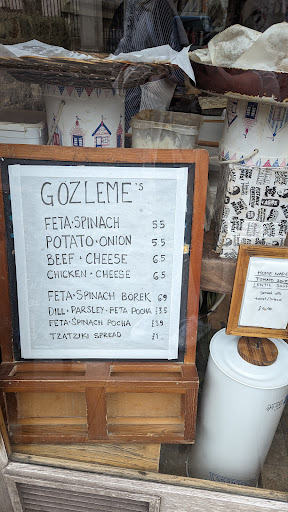 GOZLEME's
FETA·SPINACH 5.5
POTATO·ONION 5.5
BEEF · CHEESE 6.5
CHICKEN · CHEESE 6.5
FETA·SPINACH BOREK
DILL·PARSLEY·FETA POCHA £3.5
FETA·SPINACH POCHA
TZATZIKI SPREAD £1
HOME MADE
TOMATO
LENTIL SOUP